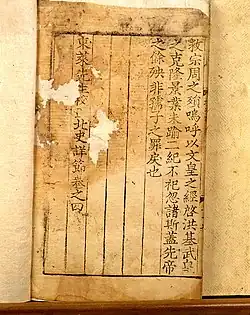 救宗周之殞嗚呼以文皇之經啓洪基武皇
之克隆景業未踰二紀不祀忽諸斯蓋先帝
之餘殃非孺子之罪戾也
東萊先生校正北史詳節卷之四